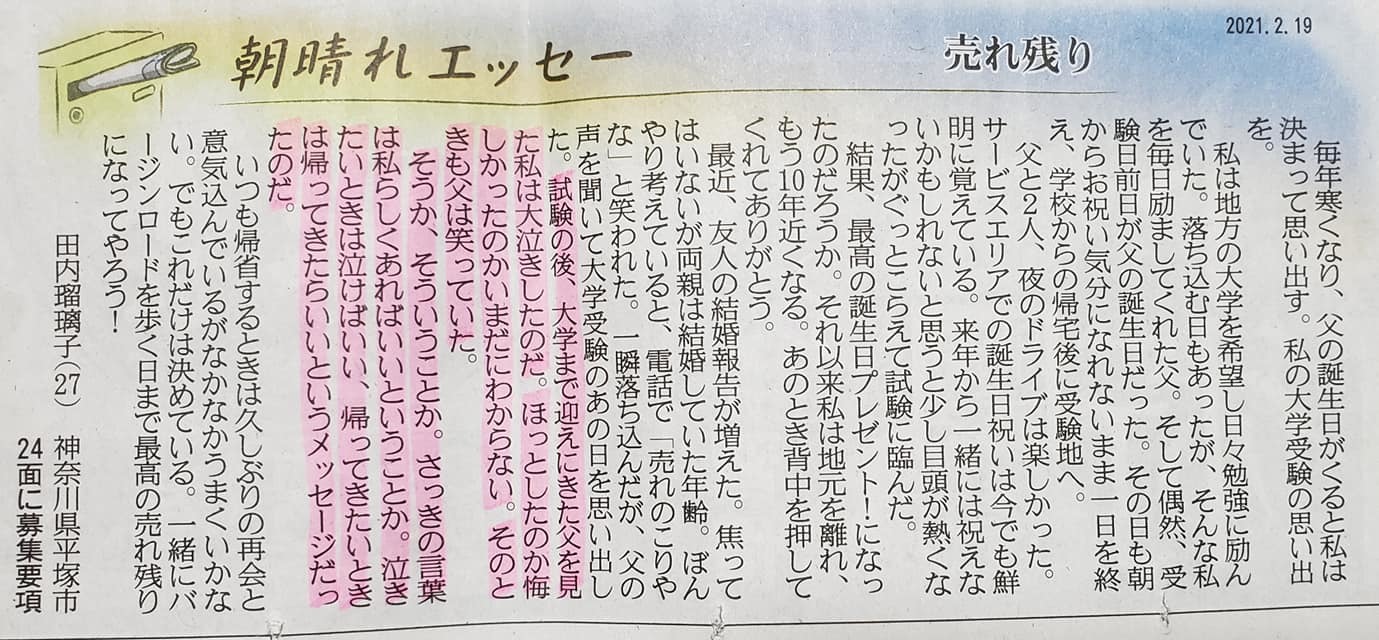 2021.2.19
朝晴れエッセー
売れ残り
毎年寒くなり、父の誕生日がくると私は
決まって思い出す。私の大学受験の思い出
を。
私は地方の大学を希望し日々勉強に励ん
でいた。落ち込む日もあったが、そんな私
を毎日励ましてくれた父。そして偶然、受
験日前日が父の誕生日だった。その日も朝
からお祝い気分になれないまま一日を終
え、学校からの帰宅後に受験地へ。
父と2人、夜のドライブは楽しかった。
サービスエリアでの誕生日祝いは今でも鮮
明に覚えている。来年から一緒には祝えな
いかもしれないと思うと少し目頭が熱くな
ったがぐっとこらえて試験に臨んだ。
結果、最高の誕生日プレゼント!になっ
たのだろうか。それ以来私は地元を離れ、
もう10年近くなる。あのとき背中を押して
くれてありがとう。
最近、友人の結婚報告が増えた。焦って
はいないが両親は結婚していた年齢。ぼん
やり考えていると、電話で「売れのこりや
な」と笑われた。一瞬落ち込んだが、父の
声を聞いて大学受験のあの日を思い出し
た。試験の後、大学まで迎えにきた父を見
た私は大泣きしたのだ。ほっとしたのか悔
しかったのかいまだにわからない。そのと
きも父は笑っていた。
そうか、そういうことか。さっきの言葉
は私らしくあればいいということか。泣き
たいときは泣けばいい、帰ってきたいとき
は帰ってきたらいいというメッセージだっ
たのだ。
いつも帰省するときは久しぶりの再会と
意気込んでいるがなかなかうまくいかな
い。でもこれだけは決めている。一緒にバ
ージンロードを歩く日まで最高の売れ残り
になってやろう!
田内瑠璃子(27) 神奈川県平塚市
24面に募集要項